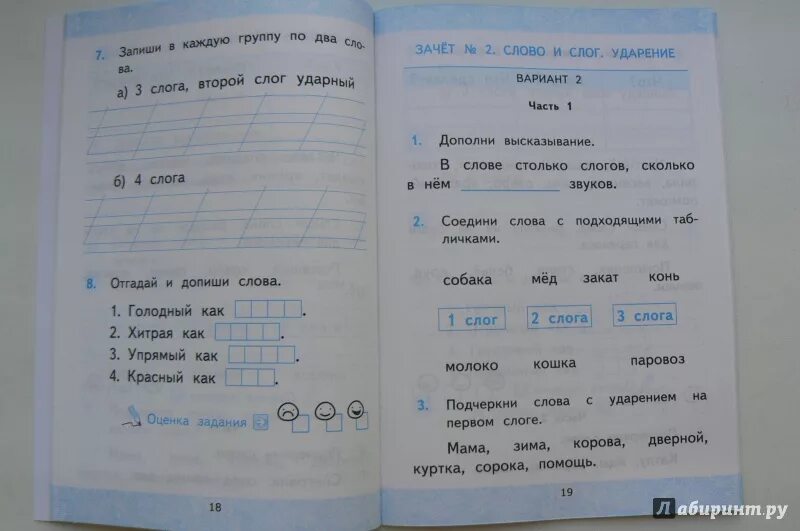 7. Запиши в каждую группу по два сло-
ва.
а) 3 слога, второй слог ударный
б) 4 слога
8. Отгадай и допиши слова.
1. Голодный как
2. Хитрая как
3. Упрямый как
4. Красный как
Оценка задания
18
ЗАЧЁТ № 2. СЛОВО И СЛОГ. УДАРЕНИЕ
ВАРИАНТ 2
Часть 1
1. Дополни высказывание.
В слове столько слогов, сколько
в нём ________ звуков.
2. Соедини слова с подходящими таб-
личками.
собака мёд закат конь
1 слог 2 слога 3 слога
молоко кошка паровоз
3. Подчеркни слова с ударением на
первом слоге.
Мама, зима, корова, дверной,
куртка, сорока, помощь.
19
Лабиринт.ру